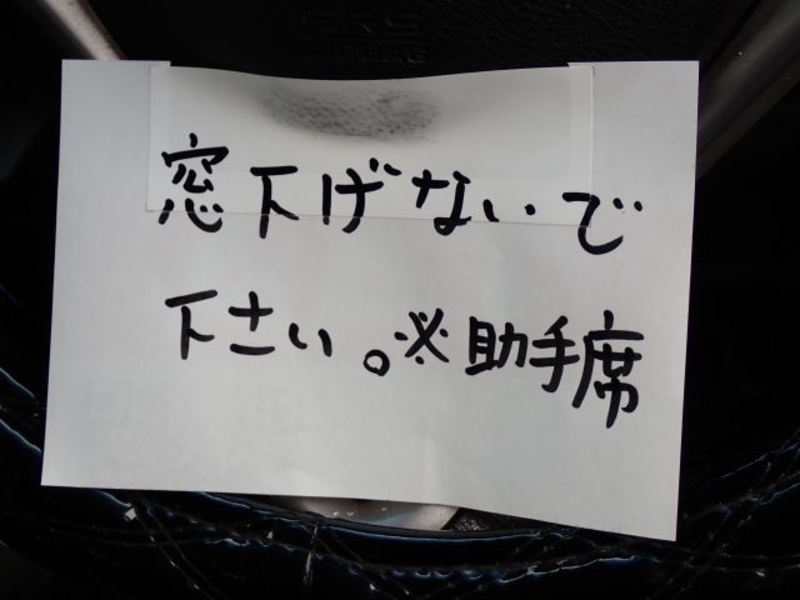 SRS
AIRBAG
窓下げないで
下さい。※助手席